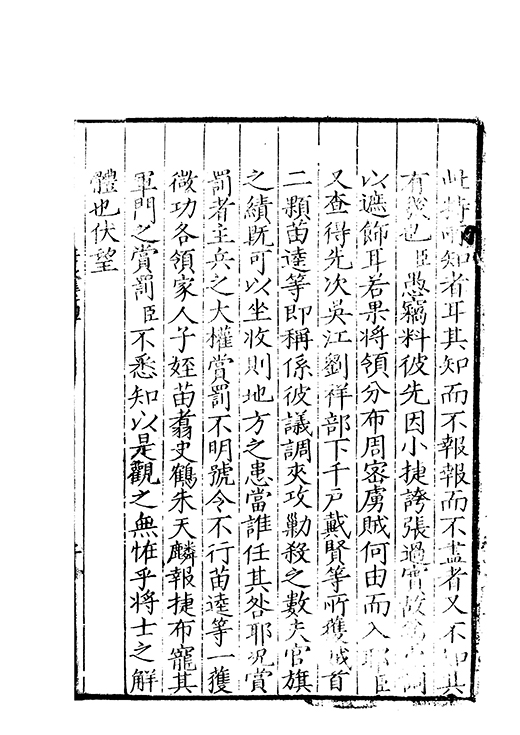 此特所知者耳其知而不報報而不盡者又不知其
有幾也臣愚竊料彼先因小捷誇張過實故
以遮飾耳若果將領分布周密虜賊何由而入耶臣
又查得先次吳江劉祥部下千戶戴賢等所獲賊首
二顆苗逵等即稱係彼議調夾攻勦殺之數夫官旗
之績既可以坐收則地方之患當誰任其咎耶況賞
罰者主兵之大權賞罰不明號令不行苗逵等一獲
微功各領家人子姪苗翥史鶴朱天麟報捷布寵其
軍門之賞罰臣不悉知以是觀之無恠乎將士之解
體也伏望